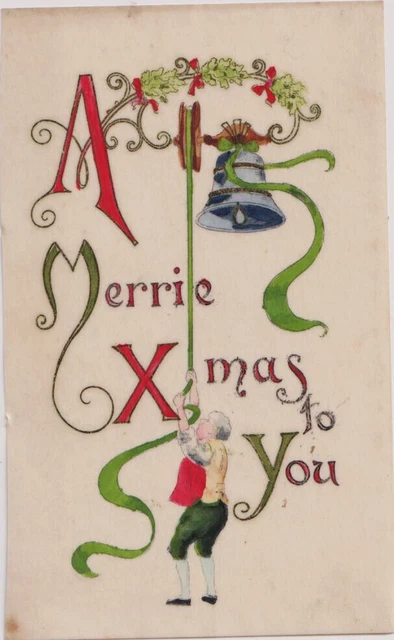 A
Merrie
Xmas
to
You